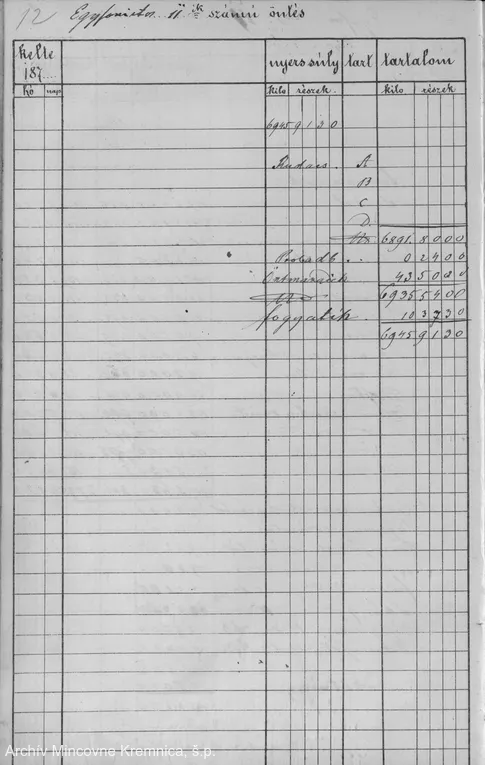 12 Egyforintos 11ik számú öntés
kelte 187 nyers súly tart tartalom
hó nap kilo részek. kilo részek
6945 9 1 3 0
Rudacs . A
B
C
D
6891. 8 0 0 0
Probadb . . 0 2 4 0 0
Öntmaradék 43 5 0 0 0
6935 5 4 0 0
fogyaték . 10 3 7 3 0
6945 9 1 3 0
Archív Mincovne Kremnica, š.p.